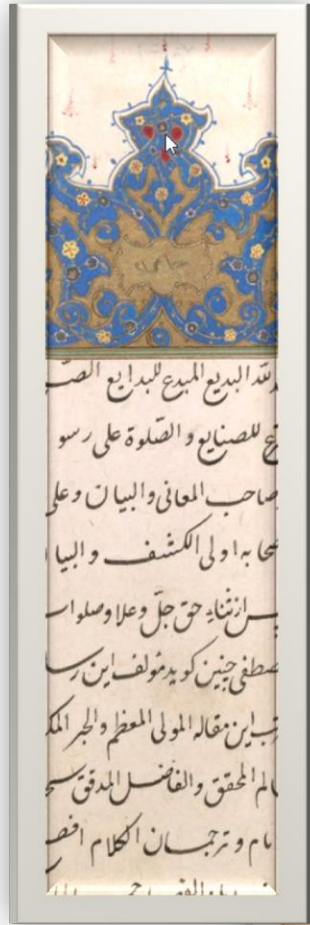 لله البدیع المبدع للبدایع الصـ
ـع للصنایع و الصّلوة علی رسو
صاحب المعانی والبیان وعلی
صحابه اولی الکشف و البیا
پس از ثناء حق جلّ وعلا وصلوات
مصطفی چنین کوید مؤلف این رسا
این مقاله المولی المعظم والحبر المکـ
الم المحقق والفاضل المدقق
ام و ترجمان الکلام افصـ